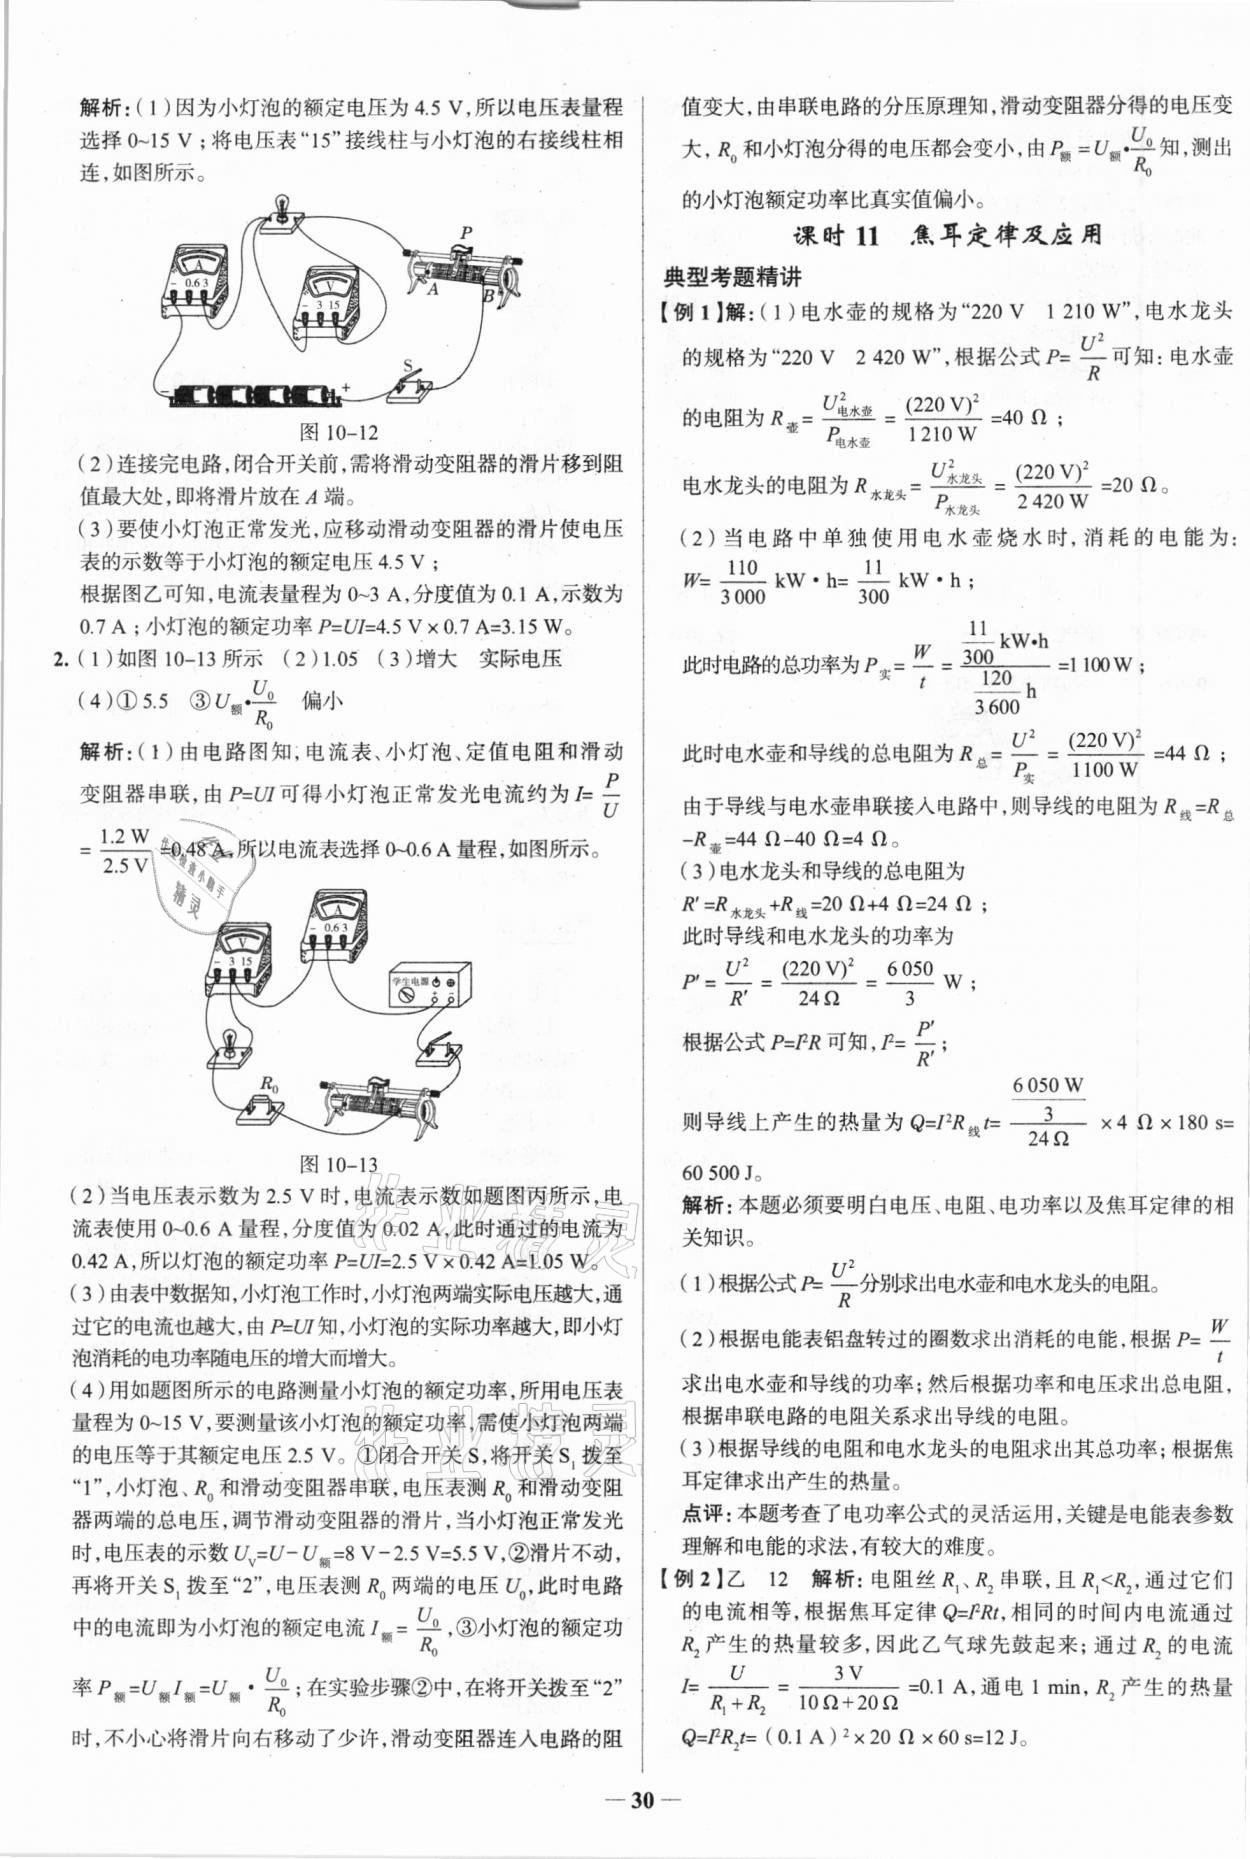 解析:(1)因为小灯泡的额定电压为 4.5 V,所以电压表量程
选择 0~15 V;将电压表“15”接线柱与小灯泡的右接线柱相
连,如图所示。
P
A
- 0.6 3
V
- 3 15
A
B
S
- +
图 10-12
(2)连接完电路,闭合开关前,需将滑动变阻器的滑片移到阻
值最大处,即将滑片放在 A 端。
(3)要使小灯泡正常发光,应移动滑动变阻器的滑片使电压
表的示数等于小灯泡的额定电压 4.5 V;
根据图乙可知,电流表量程为 0~3 A,分度值为 0.1 A,示数为
0.7 A;小灯泡的额定功率 P=UI=4.5 V×0.7 A=3.15 W。
2. (1)如图 10-13 所示 (2)1.05 (3)增大 实际电压
(4)①5.5 ③U额·U₀/R₀ 偏小
解析:(1)由电路图知,电流表、小灯泡、定值电阻和滑动
变阻器串联,由 P=UI 可得小灯泡正常发光电流约为 I=P/U
=1.2 W/2.5 V=0.48 A,所以电流表选择 0~0.6 A 量程,如图所示。
A
- 0.6 3
V
- 3 15
学生电源
R₀
图 10-13
(2)当电压表示数为 2.5 V 时,电流表示数如题图丙所示,电
流表使用 0~0.6 A 量程,分度值为 0.02 A,此时通过的电流为
0.42 A,所以灯泡的额定功率 P=UI=2.5 V×0.42 A=1.05 W。
(3)由表中数据知,小灯泡工作时,小灯泡两端实际电压越大,通
过它的电流也越大,由 P=UI 知,小灯泡的实际功率越大,即小灯
泡消耗的电功率随电压的增大而增大。
(4)用如题图所示的电路测量小灯泡的额定功率,所用电压表
量程为 0~15 V,要测量该小灯泡的额定功率,需使小灯泡两端
的电压等于其额定电压 2.5 V。①闭合开关 S,将开关 S₁ 拨至
“1”,小灯泡、R₀ 和滑动变阻器串联,电压表测 R₀ 和滑动变阻
器两端的总电压,调节滑动变阻器的滑片,当小灯泡正常发光
时,电压表的示数 UV=U-U额=8 V-2.5 V=5.5 V,②滑片不动,
再将开关 S₁ 拨至“2”,电压表测 R₀ 两端的电压 U₀,此时电路
中的电流即为小灯泡的额定电流 I额=U₀/R₀,③小灯泡的额定功
率 P额=U额I额=U额·U₀/R₀;在实验步骤②中,在将开关拨至“2”
时,不小心将滑片向右移动了少许,滑动变阻器连入电路的阻
值变大,由串联电路的分压原理知,滑动变阻器分得的电压变
大,R₀ 和小灯泡分得的电压都会变小,由 P额=U额·U₀/R₀知,测出
的小灯泡额定功率比真实值偏小。
课时 11 焦耳定律及应用
典型考题精讲
【例 1】解:(1)电水壶的规格为“220 V 1 210 W”,电水龙头
的规格为“220 V 2 420 W”,根据公式 P=U²/R可知:电水壶
的电阻为 R壶=U²电水壶/P电水壶=(220 V)²/1 210 W=40 Ω;
电水龙头的电阻为 R水龙头=U²水龙头/P水龙头=(220 V)²/2 420 W=20 Ω。
(2)当电路中单独使用电水壶烧水时,消耗的电能为:
W=110/3 000 kW·h=11/300 kW·h;
此时电路的总功率为 P实=W/t=(11/300 kW·h)/(120/3 600 h)=1 100 W;
此时电水壶和导线的总电阻为 R总=U²/P实=(220 V)²/1100 W=44 Ω;
由于导线与电水壶串联接入电路中,则导线的电阻为 R线=R总
-R壶=44 Ω-40 Ω=4 Ω。
(3)电水龙头和导线的总电阻为
R′=R水龙头+R线=20 Ω+4 Ω=24 Ω;
此时导线和电水龙头的功率为
P′=U²/R′=(220 V)²/24 Ω=6 050/3 W;
根据公式 P=I²R 可知,I²=P′/R′;
则导线上产生的热量为 Q=I²R线t=(6 050 W/3)/24 Ω×4 Ω×180 s=
60 500 J。
解析:本题必须要明白电压、电阻、电功率以及焦耳定律的相
关知识。
(1)根据公式 P=U²/R分别求出电水壶和电水龙头的电阻。
(2)根据电能表铝盘转过的圈数求出消耗的电能,根据 P=W/t
求出电水壶和导线的功率;然后根据功率和电压求出总电阻,
根据串联电路的电阻关系求出导线的电阻。
(3)根据导线的电阻和电水龙头的电阻求出其总功率;根据焦
耳定律求出产生的热量。
点评:本题考查了电功率公式的灵活运用,关键是电能表参数
理解和电能的求法,有较大的难度。
【例 2】乙 12 解析:电阻丝 R₁、R₂ 串联,且 R₁<R₂,通过它们
的电流相等,根据焦耳定律 Q=I²Rt,相同的时间内电流通过
R₂ 产生的热量较多,因此乙气球先鼓起来;通过 R₂ 的电流
I=U/(R₁+R₂)=3 V/(10 Ω+20 Ω)=0.1 A,通电 1 min,R₂ 产生的热量
Q=I²R₂t=(0.1 A)²×20 Ω×60 s=12 J。
— 30 —